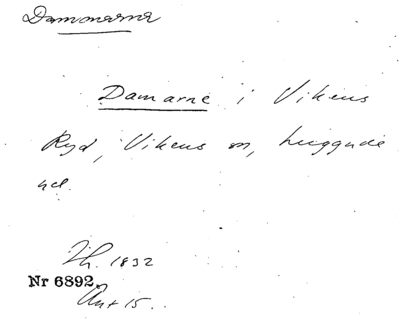 Dammarna
Damarne i Vikens
Ryd, Vikens sn, Luggude
hd.
Jh. 1832
Nr 6892.
Ant 15.